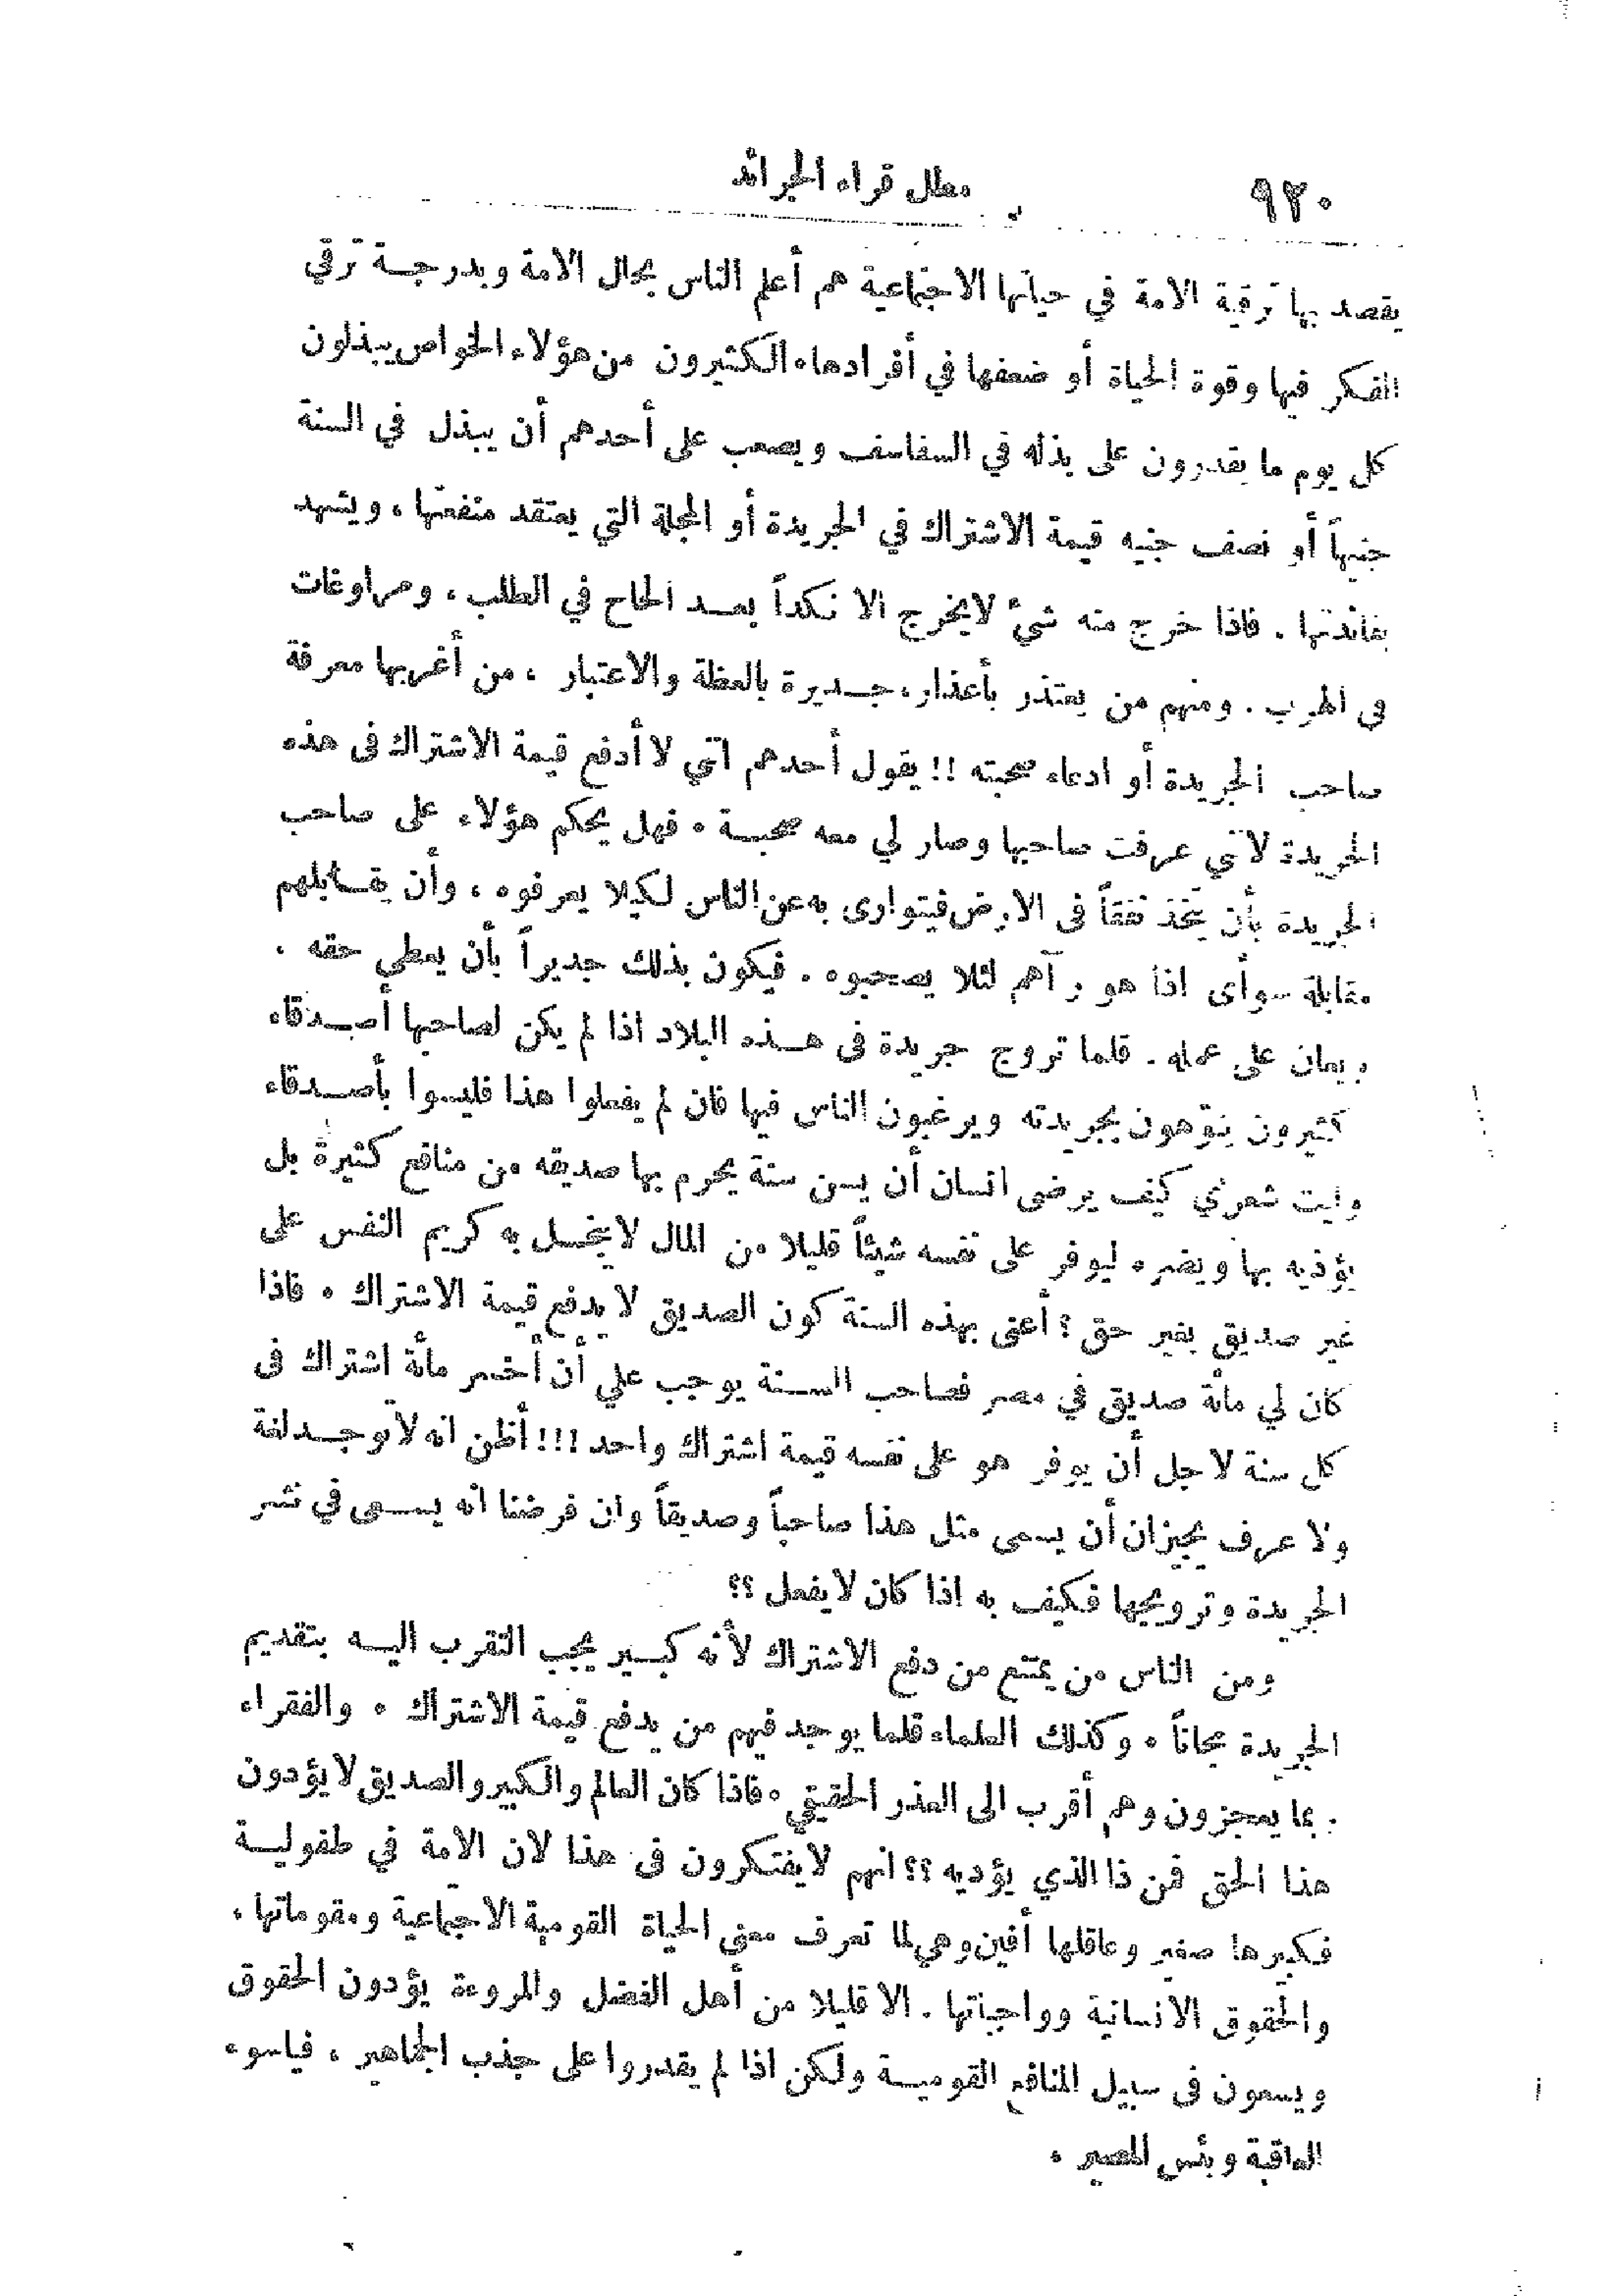 ٩٢٠
مطل قراء الجرائد
يقصد بها ترقية الامة في حياتها الاجتماعية هم أعلم الناس بحال الامة وبدرجة ترقي
الفكر فيها وقوة الحياة أو ضعفها في أفرادها. الكثيرون من هؤلاء الخواص يبذلون
كل يوم ما يقدرون على بذله في السفاسف ويصعب على أحدهم أن يبذل في السنة
جنيهاً أو نصف جنيه قيمة الاشتراك في الجريدة أو المجلة التي يعتقد منفعتها، ويشهد
بفائدتها. فاذا خرج منه شيء لايخرج الا نكداً بعد الحاح في الطلب، ومراوغات
في الهرب. ومنهم من يعتذر بأعذار، جديرة بالعظة والاعتبار، من أغربها معرفة
صاحب الجريدة أو ادعاء صحبته!! يقول أحدهم انني لا أدفع قيمة الاشتراك في هذه
الجريدة لانني عرفت صاحبها وصار لي معه صحبة. فهل يحكم هؤلاء على صاحب
الجريدة بأن يتخذ نفقاً في الارض فيتوارى به عن الناس لكيلا يعرفوه، وأن يقابلهم
مقابلة سوأى اذا هو رآهم لئلا يصحبوه. فيكون بذلك جديراً بأن يعطي حقه.
ويعان على عمله. قلما تروج جريدة في هذه البلاد اذا لم يكن لصاحبها أصدقاء
كثيرون ينوهون بجريدته ويرغبون الناس فيها فان لم يفعلوا هذا فليسوا بأصدقاء
وليت شعري كيف يرضى انسان أن يسن سنة يحرم بها صديقه من منافع كثيرة بل
يؤذيه بها ويضره ليوفر على نفسه شيئاً قليلا من المال لايبخل به كريم النفس على
غير صديق بغير حق؟ أعني بهذه السنة كون الصديق لا يدفع قيمة الاشتراك. فاذا
كان لي مائة صديق في مصر فصاحب السنة يوجب علي أن أخسر مائة اشتراك في
كل سنة لاجل أن يوفر هو على نفسه قيمة اشتراك واحد!!! أظن انه لا توجد لغة
ولا عرف يجيزان أن يسمى مثل هذا صاحباً وصديقاً وان فرضنا انه يسعى في نشر
الجريدة وترويجها فكيف به اذا كان لايفعل؟؟
ومن الناس من يمتنع من دفع الاشتراك لأنه كبير يجب التقرب اليه بتقديم
الجريدة مجاناً. وكذلك العلماء قلما يوجد فيهم من يدفع قيمة الاشتراك. والفقراء
ربما يعجزون وهم أقرب الى العذر الحقيقي. فاذا كان العالم والكبير والصديق لايؤدون
هذا الحق فمن ذا الذي يؤديه؟؟ انهم لايفتكرون في هذا لان الامة في طفولية
فكبيرها صغير وعاقلها أفين وهي لما تعرف معنى الحياة القومية الاجتماعية ومقوماتها،
والحقوق الانسانية وواجباتها. الا قليلا من أهل الفضل والمروءة يؤدون الحقوق
ويسعون في سبيل المنافع القومية ولكن اذا لم يقدروا على جذب الجماهير، فياسوء
العاقبة وبئس المصير.